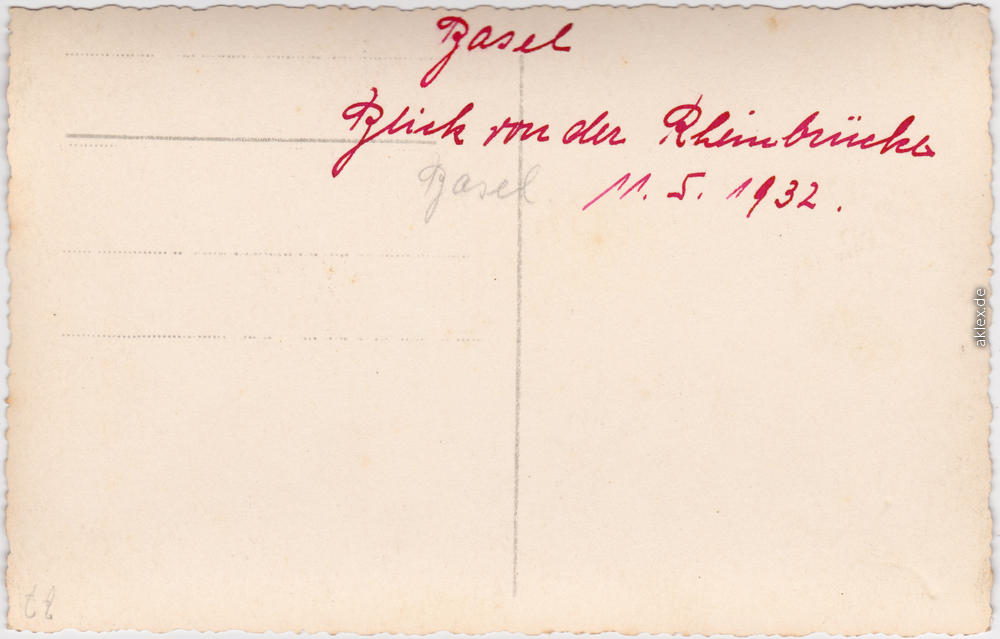 Basel
Blick von der Rheinbrücke
Basel.
11. 5. 1932.
aklex.de